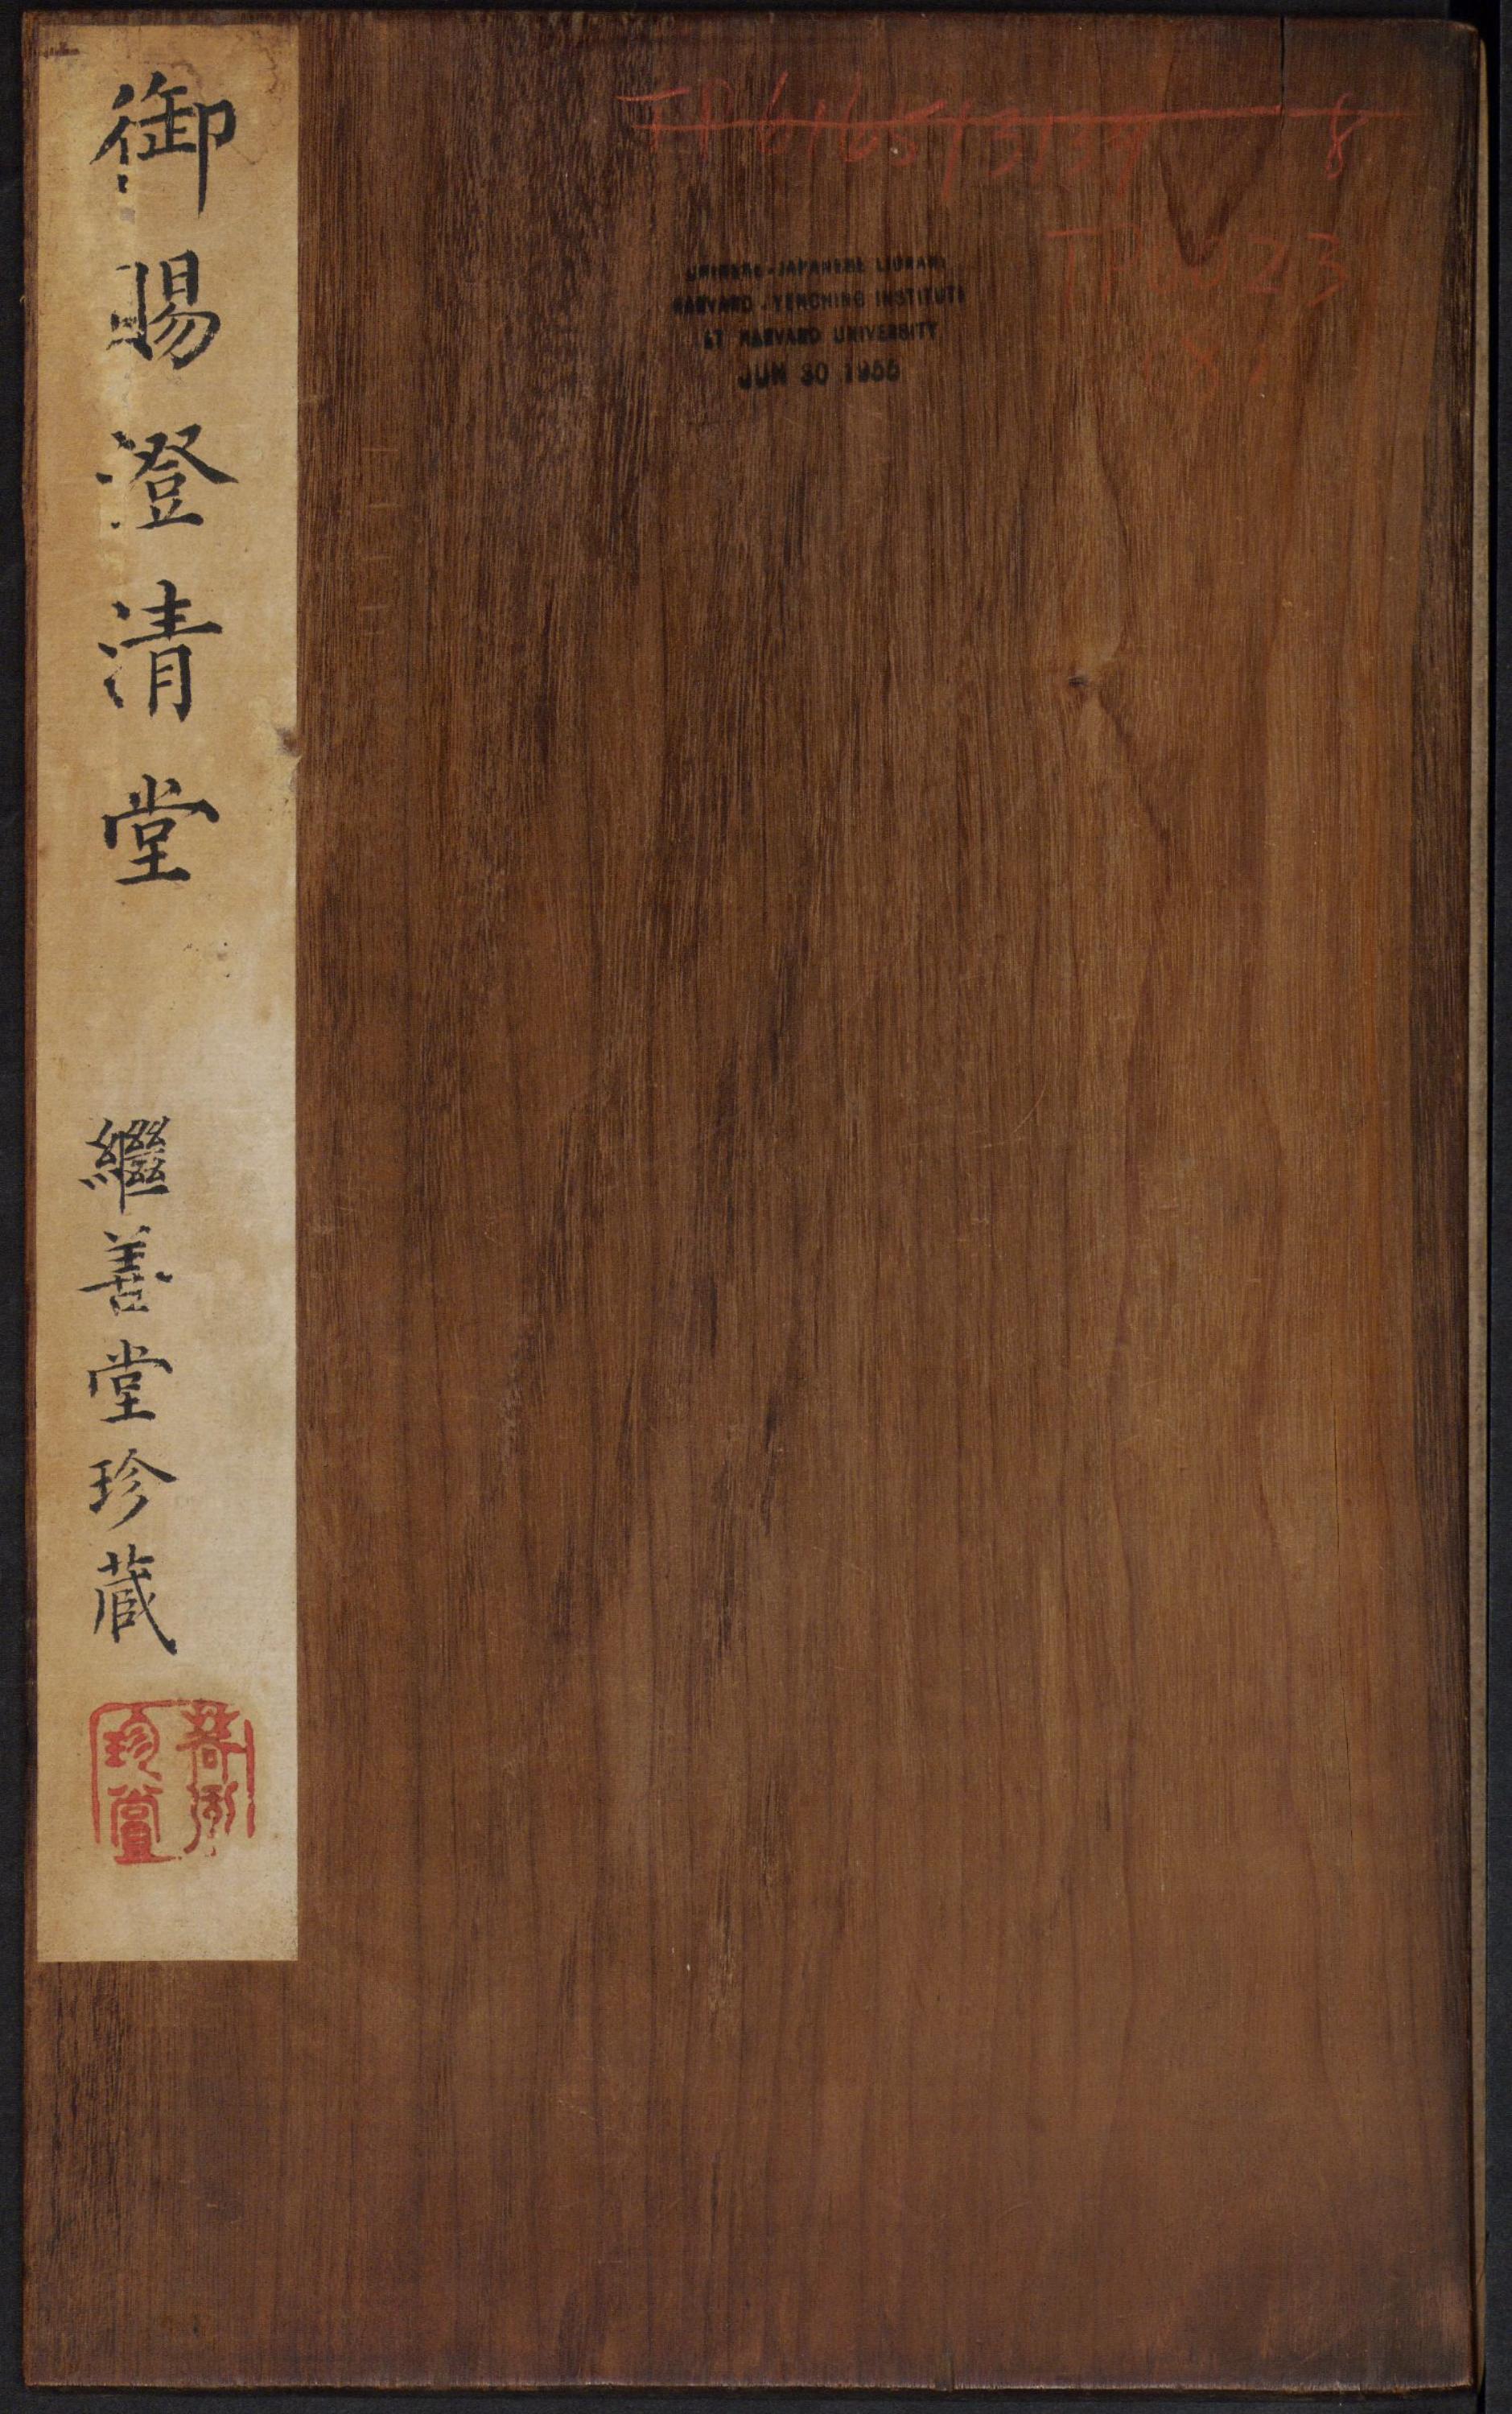 御賜澄清堂
繼善堂珍藏
珍賞
CHINESE-JAPANESE LIBRARY
HARVARD-YENCHING INSTITUTE
AT HARVARD UNIVERSITY
JUN 30 1955
8